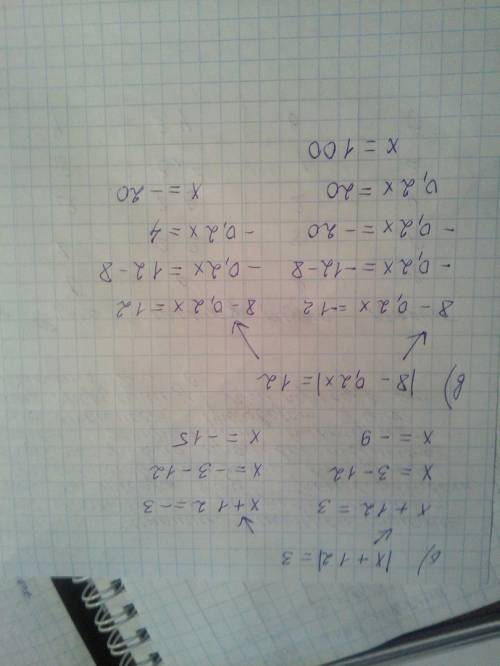 б) |x + 12| = 3
x + 12 = 3    x + 12 = -3
x = 3-12    x = -3-12
x = -9    x = -15
в) |8 - 0,2x| = 12
8 - 0,2x = -12    8 - 0,2x = 12
- 0,2x = -12-8    - 0,2x = 12-8
- 0,2x = -20    - 0,2x = 4
0,2x = 20    x = -20
x = 100